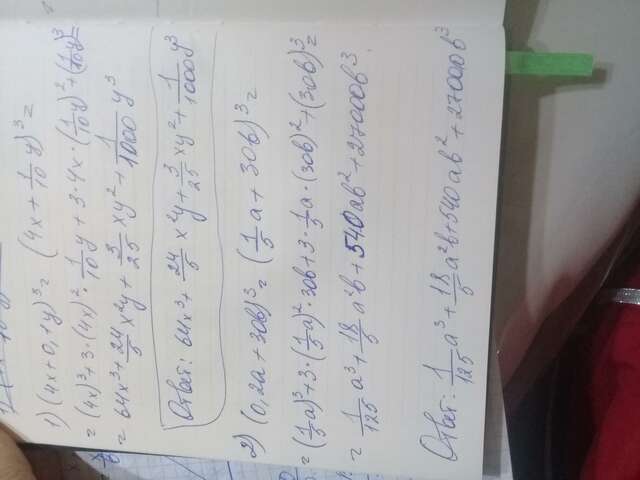 1) (4x+0,1y)³ = (4x + 1/10 y)³ =
= (4x)³+3·(4x)²·1/10 y + 3·4x·(1/10 y)²+(1/10 y)³=
= 64x³+24/5 x²y+3/25 xy²+1/1000 y³
Ответ: 64x³+24/5 x²y+3/25 xy²+1/1000 y³
2) (0,2a+30b)³ = (1/5 a + 30b)³ =
= (1/5 a)³+3·(1/5 a)²·30b+3·1/5 a·(30b)²+(30b)³=
= 1/125 a³+18/5 a²b+540ab²+27000b³.
Ответ: 1/125 a³+18/5 a²b+540ab²+27000b³